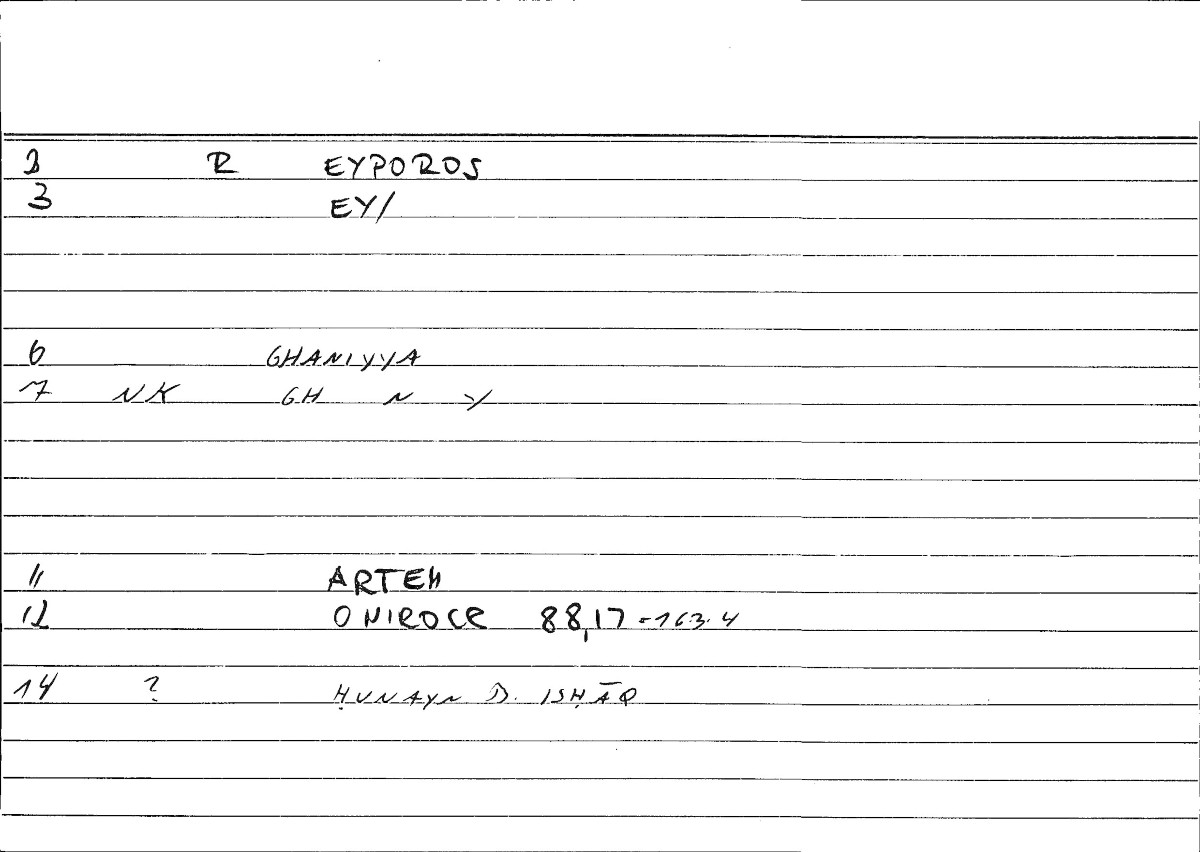 2 R EYPOROS
3 EY/
6 GHANIYYA
7 NK GH N Y
11 ARTEM
12 ONIROCR 88,17-163.4
14 ? ḤUNAYN B. ISḤĀQ